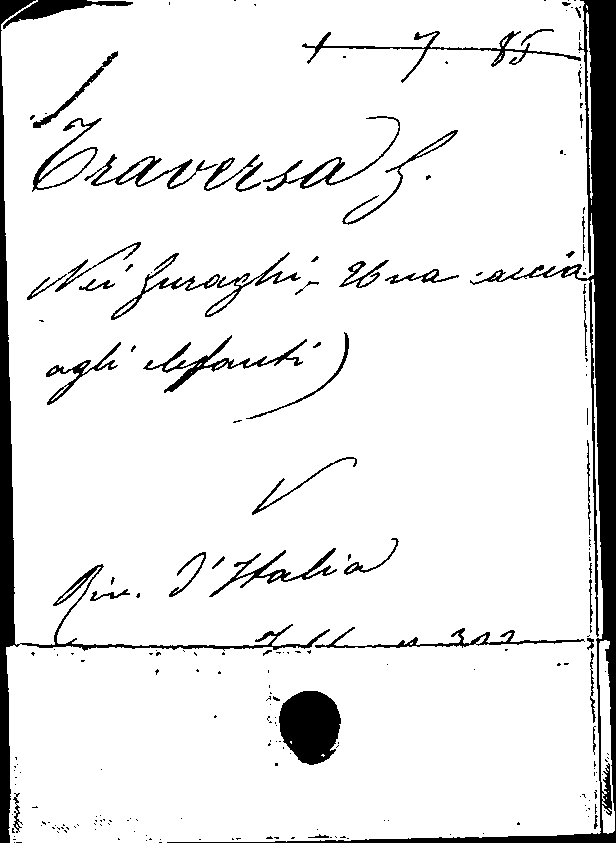 1. 7. 85
Traversa G.
Nei Guraghi, - Una caccia
agli elefanti)
V
Riv. d'Italia